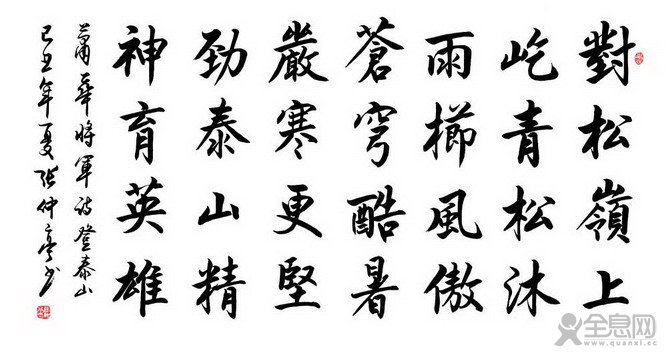 對松嶺上
屹青松沐
雨櫛風傲
蒼穹酷暑
嚴寒更堅
勁泰山精
神育英雄
萧華將軍诗登泰山
己丑年夏张仲亭书
全息网
www.quanxi.cc